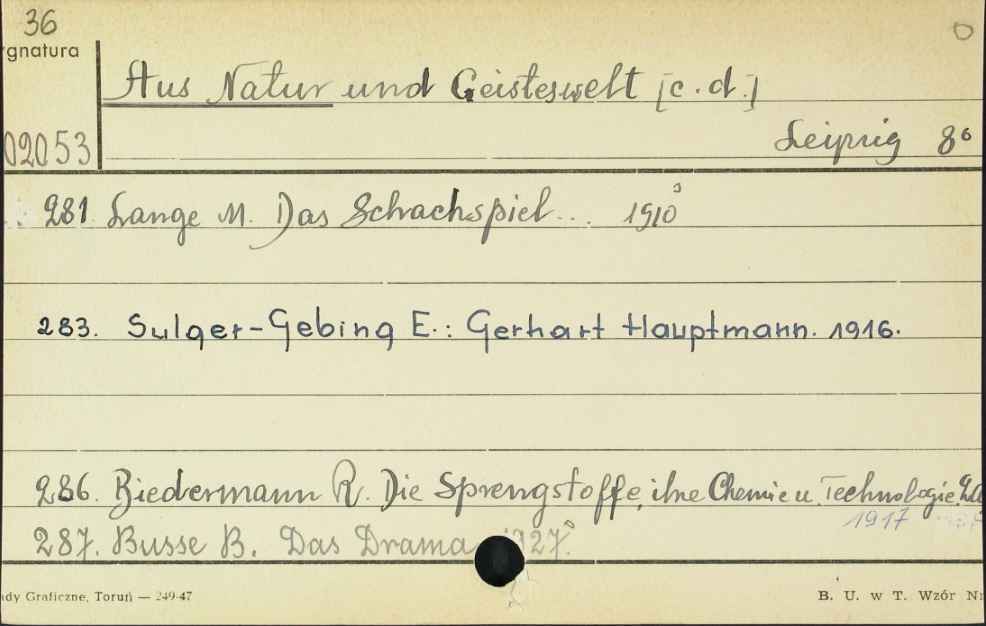 36
gnatura
Aus Natur und Geisteswelt [c.d.]
02053
Leipzig 8°
281. Lange M. Das Schachspiel... 1910
283. Sulger-Gebing E.: Gerhart Hauptmann. 1916.
286. Biedermann R. Die Sprengstoffe, ihre Chemie u. Technologie. 2.A
1917
287. Busse B. Das Drama 1927.
ady Graficzne, Toruń — 249-47
B. U. w T. Wzór Nr